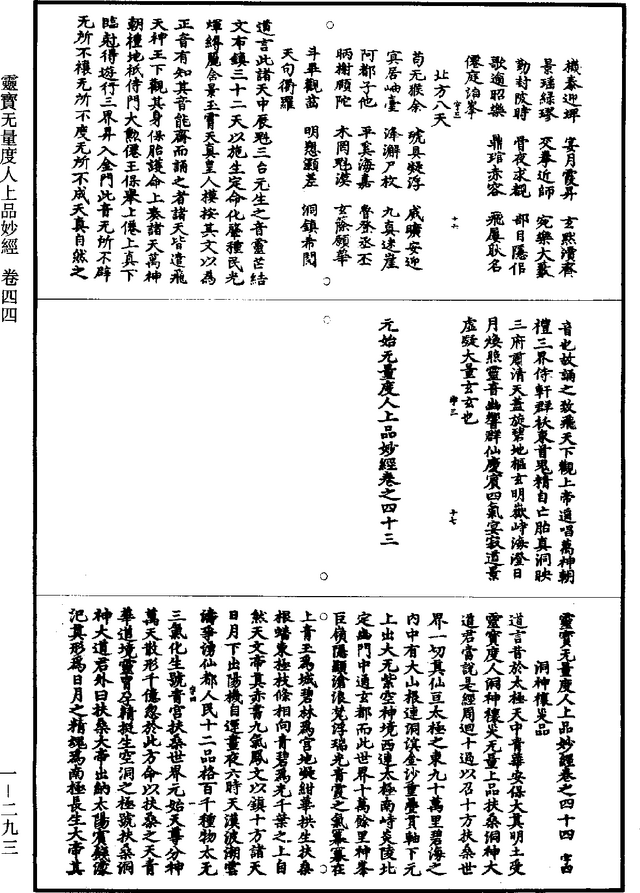 橫泰迎墀　宴月霞昇　玄熙潰齊
景瑤綠璆　交華近師　宛樂大歎
勤封陂時　骨夜求覩　都目隱侶
歌逈昭樂　鼎琯赤容　飛履耿名
僊庭治峯
北方八天
苟无猴余　琥具凝浮　咸曠安迎
賓居岫臺　洚澥尸枚　九真速崖
阿都子他　平奚海嘉　魯啓丞丕
炳樹願陀　木罔魁漠　玄蔭願華
斗畢觀　明愬灝差　洞鎮希閱
天句衢羅
道言此諸天中辰魁三台元生之音靈芒結
文布鎮三十二天以施生定命化種民光
煇緯麗含景玉霄天真皇人按其文以為
正音有知其音能齋而誦之者諸天皆遣飛
天神王下觀其身保胎護命上奏諸天萬神
朝禮地祇侍門大勲僊王保舉上僊上真下
臨尅得遊行三界昇入金門此音无所不辟
无所不禳无所不度无所不成天真自然之
音也故誦之致飛天下觀上帝遥唱萬神朝
禮三界侍軒群妖束首鬼精自亡胎真洞映
三府肅清天蓋旋碧地樞玄明嶽峙海澄日
月煥照靈音幽響群仙慶賓四氣寧寂道景
虛凝大量玄玄也
十七
元始无量度人上品妙經卷之四十三
靈寶无量度人上品妙經卷之四十四　字四
洞神禳災品
道言昔於太極天中青華安保大真明土受
靈寶度人洞神禳災无量上品扶桑洞神大
道君當說是經周迴十過以召十方扶桑世
界一切真仙亘太極之東九十萬里碧海之
內中有大山根連洞溟金沙重疊貫軸下元
上出大无紫空神境西連太極南峙炎陵北
定幽門中通玄都而此世界十萬餘里神峯
巨嶺隱顯滄浪梵浮瑞光青霞之氣幕幕在
上青玉為城碧林為宮地凝紺華拱生扶桑
根蟠東極枝條相向青碧為光千葉之上自
然天文帝真赤書九氣鳳文以鎮十方諸天
日月下出陽機自運晝夜六時天漢波潮雲
濤爭湧仙都人民十二品格百千種物太无
三氣化生號青宮扶桑世界元始天尊分神
萬天散形千億忽於此方命以扶桑之天青
華道境靈寶孕精挺生空洞之極號扶桑洞
神大道君外曰扶桑大帝出納太陽賓餞濛
汜其形為日月之精魂為南極長生大帝其
靈寶无量度人上品妙經　卷四四
一—二九三